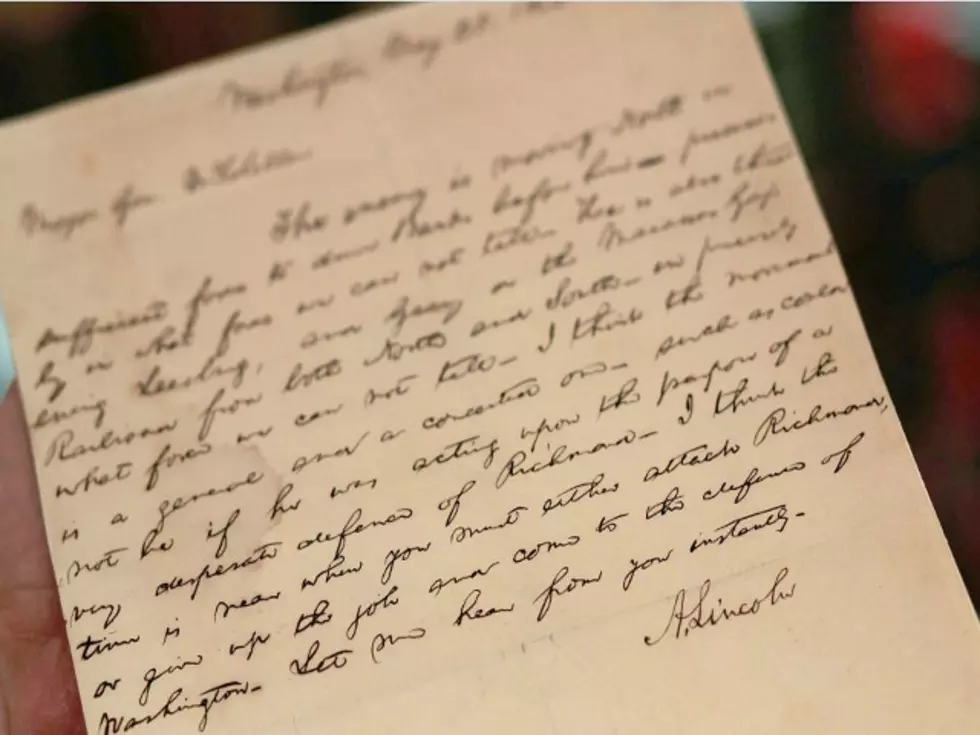 Washington, May 25.
Major Gen. McClellan
The enemy is moving North in
sufficient force to drive Banks before him — precise-
ly in what force we can not tell. He is also threat-
ening Leesburg, and Geary on the Manassas Gap
Railroad from both North and South — in precisely
what force we can not tell — I think the movement
is a general and a concerted one — such as could
not be if he was acting upon the purpose of a
very desperate defence of Richmond — I think the
time is near when you must either attack Richmond,
or give up the job and come to the defence of
Washington — Let me hear from you instantly —
A. Lincoln